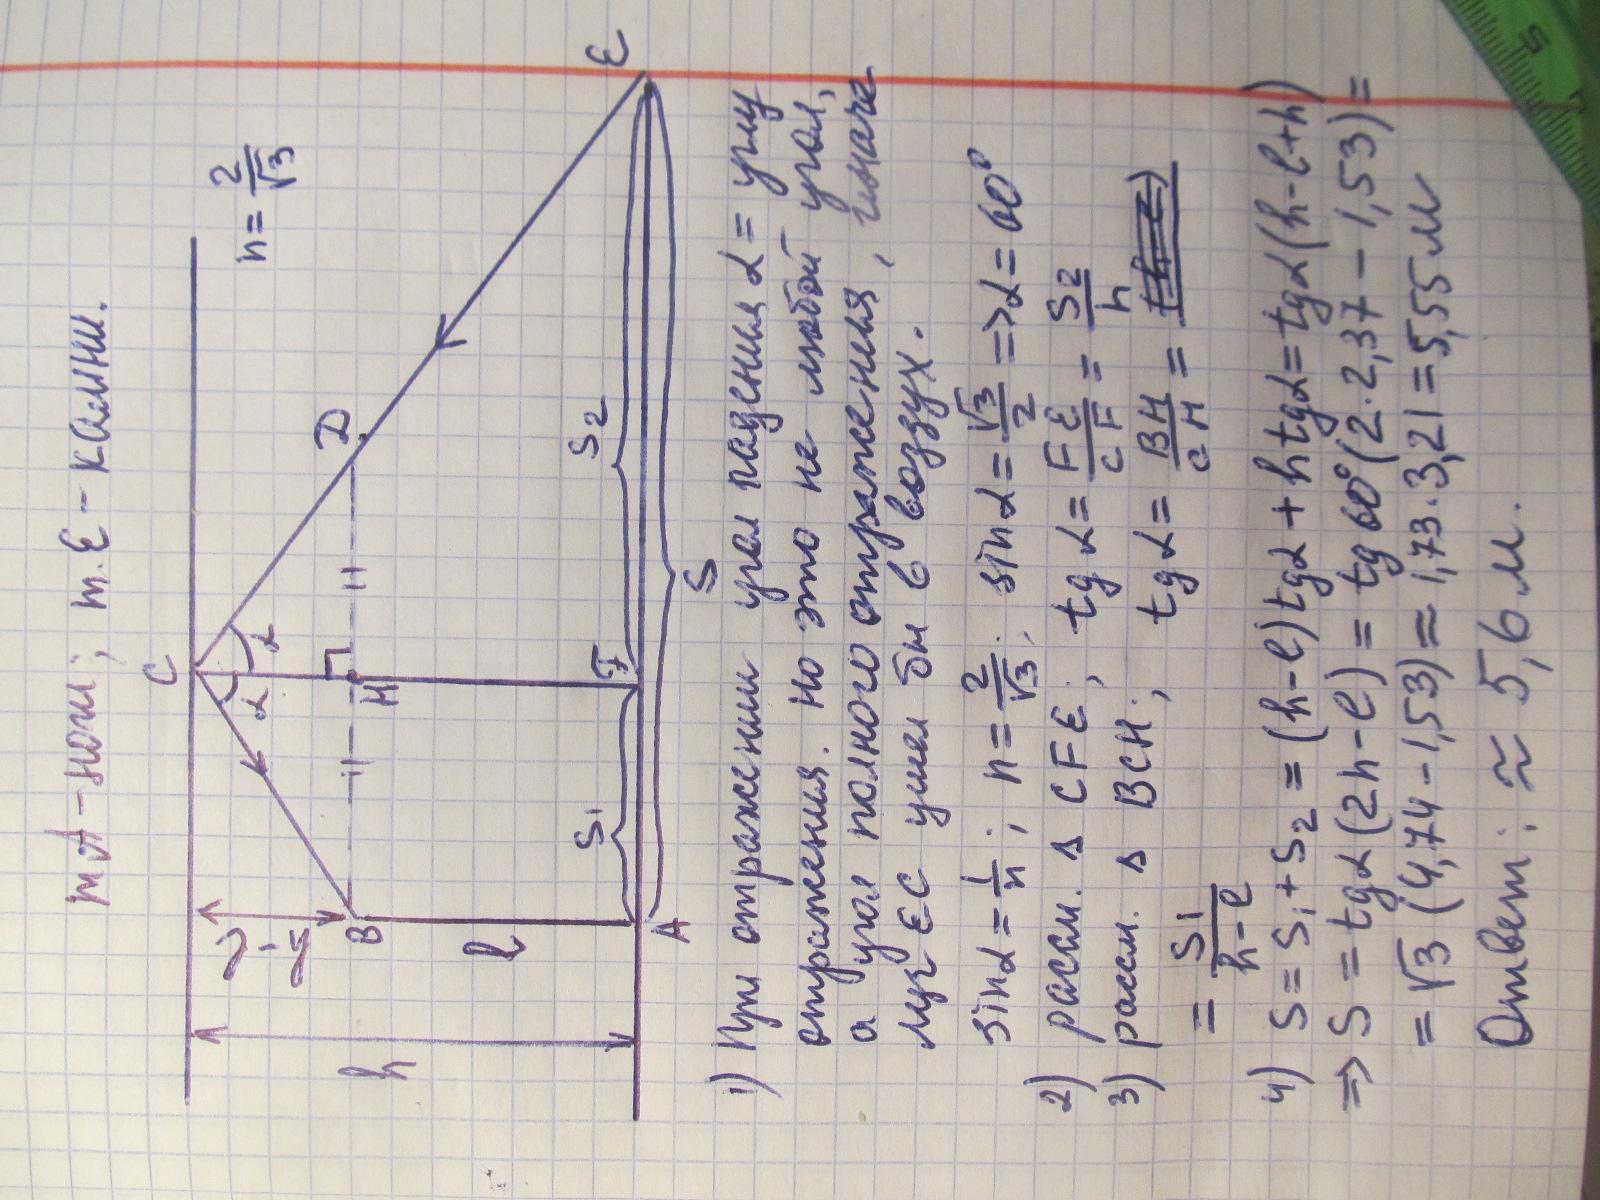 т.А – ноги; т. Е – камни.
n = 2/√3
C
D
E
α
α
h–l
H
B
l
h
S₁
S₂
F
A
S
1) При отражении угол падения α = углу
отражения. Но это не любой угол,
а угол полного отражения, иначе
луч ЕС ушел бы в воздух.
sin α = 1/n; n = 2/√3; sin α = √3/2 => α = 60°
2) рассм. Δ CFE; tg α = FE/CF = S₂/h
3) рассм. Δ BCH; tg α = BH/CH =
= S₁/(h–l)
4) S = S₁ + S₂ = (h–l) tg α + h tg α = tg α (h–l+h)
=> S = tg α (2h–l) = tg 60° (2·2,37 – 1,53) =
= √3 (4,74 – 1,53) = 1,73·3,21 = 5,55 м
Ответ: ≈ 5,6 м.
5